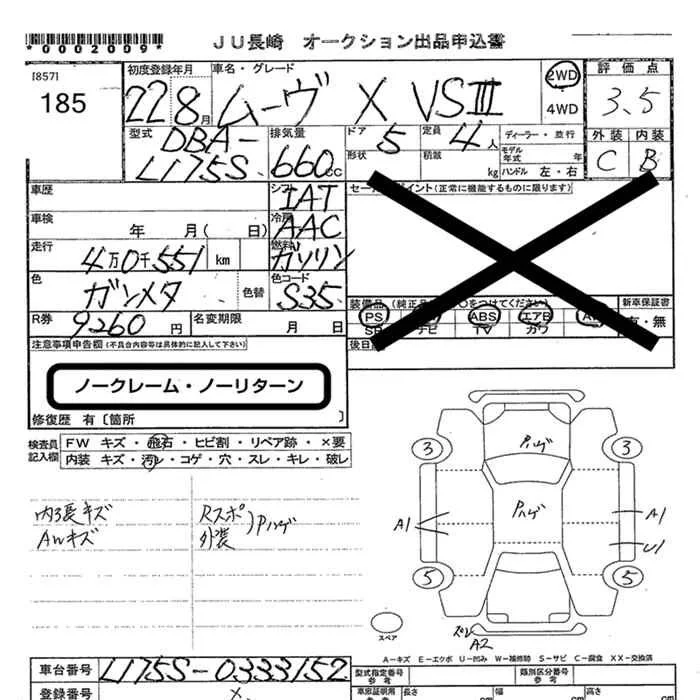 *0002009*
JU長崎 オークション出品申込書
[857]
185
初度登録年月 22 8月
車名・グレード ムーヴ X VSⅢ
2WD
4WD
評価点
3.5
外装 内装
C B
型式 DBA-L175S
排気量 660cc
ドア 5
定員 4人
形状
積載 kg
ディーラー・並行
モデル年式 年
ハンドル 左・右
車歴
シフト IAT
セールスポイント(正常に機能するものに限ります)
車検 年 月( 日)
冷房 AAC
走行 4万0千551 km
燃料 ガソリン
色 ガンメタ
色替
色コード S35
R券 9260円
名変期限 月 日
装備品
新車保証書
有・無
PS ABS エアB
ナビ TV カワ
後日
注意事項申告欄(不具合内容等は具体的に記入して下さい)
ノークレーム・ノーリターン
修復歴 有〔箇所 〕
検査員記入欄
FW キズ・飛石・ヒビ割・リペア跡・×要
内装 キズ・汚レ・コゲ・穴・スレ・キレ・破レ
内張キズ
AWキズ
Rスポ
外装
Pハゲ
Pハゲ
3 3
Pハゲ
A1 A1
U1
5 5
スペア
A2
A-キズ E-エクボ U-凹み W-補修跡 S-サビ C-腐食 XX-交換済
車台番号 L175S-0333152
型式指定番号
参考
類別区分番号
参考
登録番号
車庫証明用
参考
長さ
幅
高さ